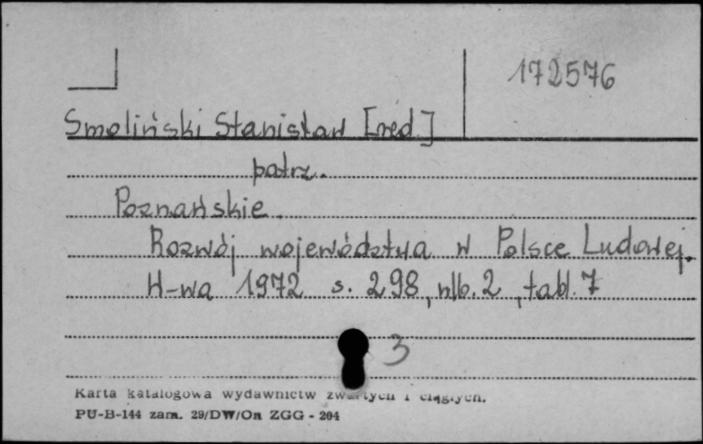 172576
Smoliński Stanisław [red.]
patrz.
Poznańskie.
Rozwój województwa w Polsce Ludowej.
W-wa 1972 s. 298, nlb. 2, tabl. 7
3
Karta katalogowa wydawnictw zwartych i ciągłych.
PU-B-144 zam. 29/DW/On ZGG - 204